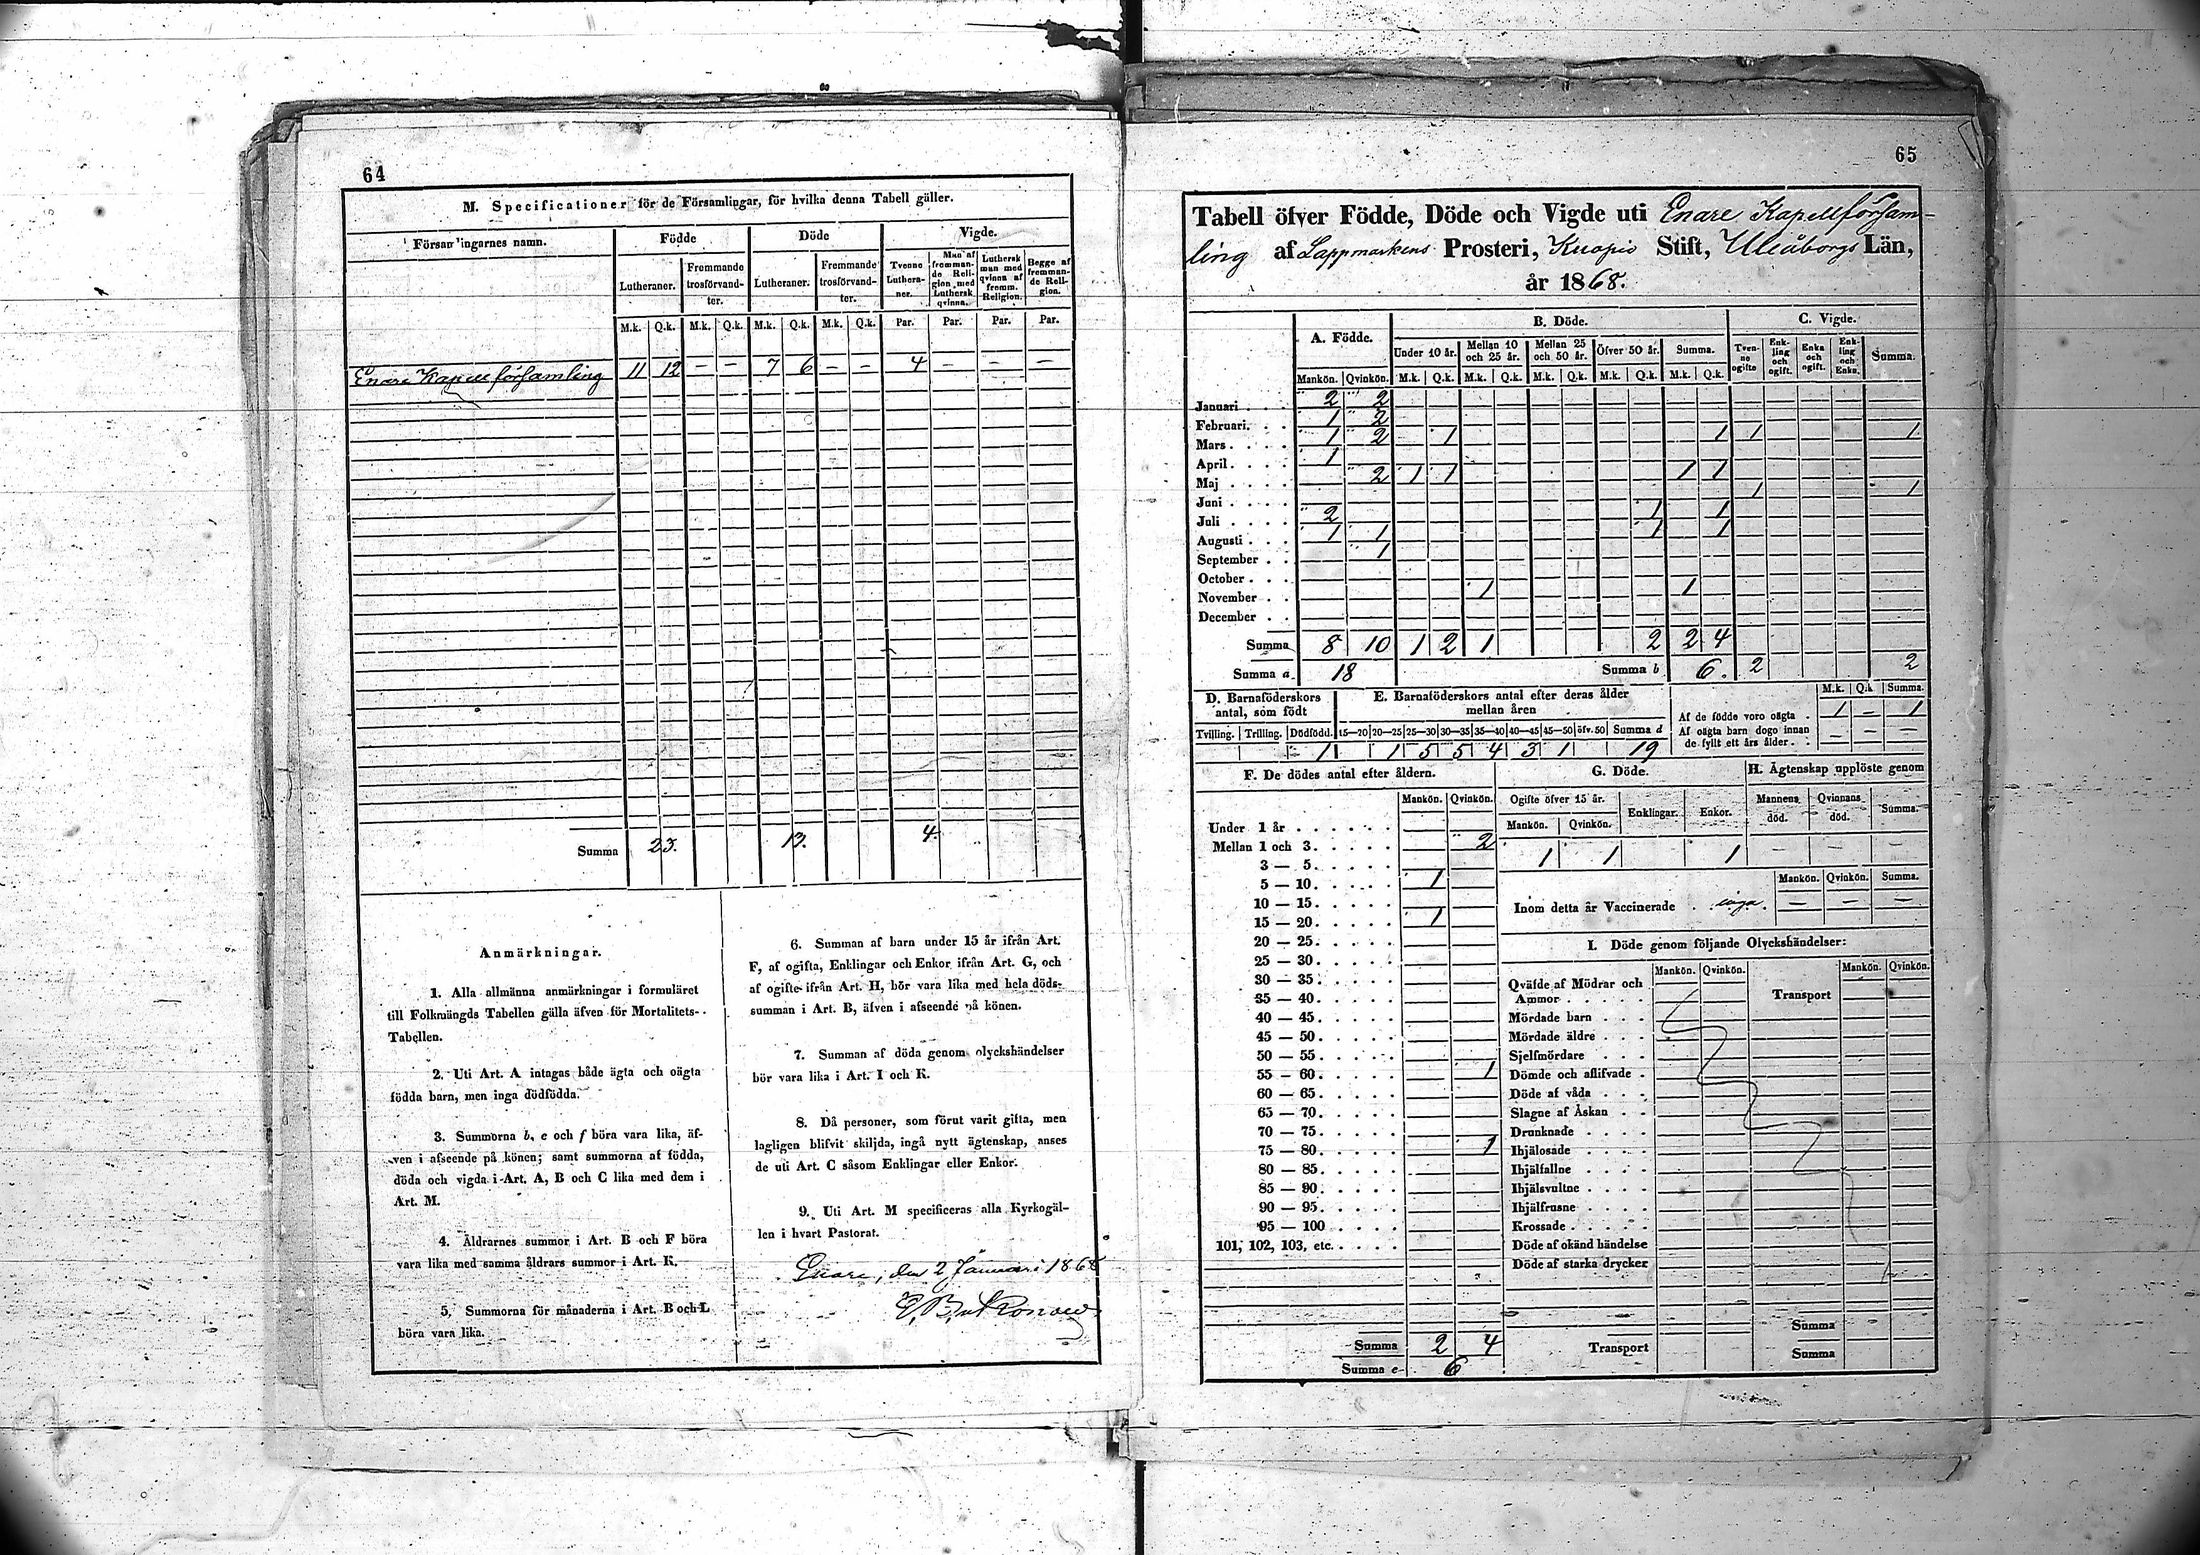 64
M. Specificationer för de Församlingar, för hvilka denna Tabell gäller.
Församlingarnes namn. Födde Döde Vigde.
Lutheraner. Fremmande trosförvandter. Lutheraner. Fremmande trosförvandter. Tvenne Lutheraner. Man af fremmande Religion med Luthersk qvinna. Luthersk man med qvinna af fremm. Religion. Begge af fremmande Religion.
M.k. Q.k. M.k. Q.k. M.k. Q.k. M.k. Q.k. Par. Par. Par. Par.
Enare Kapellförsamling 11 12 — — 7 6 — — 4 — — —
Summa 23. 13. 4.
Anmärkningar.
1. Alla allmänna anmärkningar i formuläret
till Folkmängds Tabellen gälla äfven för Mortalitets-
Tabellen.
2. Uti Art. A intagas både ägta och oägta
födda barn, men inga dödfödda.
3. Summorna b, e och f böra vara lika, äf-
ven i afseende på könen; samt summorna af födda,
döda och vigda i Art. A, B och C lika med dem i
Art. M.
4. Åldrarnes summor i Art. B och F böra
vara lika med samma åldrars summor i Art. K.
5. Summorna för månaderna i Art. B och L
böra vara lika.
6. Summan af barn under 15 år ifrån Art.
F, af ogifta, Enklingar och Enkor ifrån Art. G, och
af ogifte ifrån Art. H, bör vara lika med hela döds-
summan i Art. B, äfven i afseende på könen.
7. Summan af döda genom olyckshändelser
bör vara lika i Art. I och K.
8. Då personer, som förut varit gifta, men
lagligen blifvit skiljda, ingå nytt ägtenskap, anses
de uti Art. C såsom Enklingar eller Enkor.
9. Uti Art. M specificeras alla Kyrkogäl-
len i hvart Pastorat.
Enare, den 2 Januari 1868
65
Tabell öfver Födde, Döde och Vigde uti Enare Kapellförsam-
ling af Lappmarkens Prosteri, Kuopio Stift, Uleåborgs Län,
år 1868.
A. Födde. B. Döde. C. Vigde.
Under 10 år. Mellan 10 och 25 år. Mellan 25 och 50 år. Öfver 50 år. Summa. Tvenne ogifte Enkling och ogift. Enka och ogift. Enkling och Enka. Summa.
Mankön. Qvinkön. M.k. Q.k. M.k. Q.k. M.k. Q.k. M.k. Q.k. M.k. Q.k.
Januari . . . 2 2
Februari. . . 1 2
Mars . . . . 1 2 1 1 1 1
April . . . . 1
Maj . . . . 2 1 1 1 1
Juni . . . . 1 1
Juli . . . . 2 1 1
Augusti . . . 1 1 1 1
September . . 1
October . . .
November . . 1 1
December . .
Summa 8 10 1 2 1 2 2 4
Summa a 18 Summa b 6. 2 2
D. Barnaföderskors antal, som född
E. Barnaföderskors antal efter deras ålder mellan åren
M.k. Q.k. Summa.
Af de födde voro oägta . 1 — 1
Af oägta barn dogo innan de fyllt ett års ålder. . — — —
Tvilling. Trilling. Dödfödd. 15—20 20—25 25—30 30—35 35—40 40—45 45—50 öfv. 50 Summa d
1 1 5 5 4 3 1 19
F. De dödes antal efter åldern.
Mankön. Qvinkön.
Under 1 år . . . . . .
Mellan 1 och 3. . . . . 2
3 — 5. . . . .
5 — 10. . . . . 1
10 — 15. . . . .
15 — 20. . . . . 1
20 — 25. . . . .
25 — 30. . . . .
30 — 35. . . . .
35 — 40. . . . .
40 — 45. . . . .
45 — 50. . . . .
50 — 55. . . . .
55 — 60. . . . . 1
60 — 65. . . . .
65 — 70. . . . .
70 — 75. . . . .
75 — 80. . . . . 1
80 — 85. . . . .
85 — 90. . . . .
90 — 95. . . . .
95 — 100 . . . .
101, 102, 103, etc. . . . .
Summa 2 4
Summa e 6
G. Döde.
Ogifte öfver 15 år. Enklingar. Enkor.
Mankön. Qvinkön.
1 1 1
H. Ägtenskap upplöste genom
Mannens död. Qvinnans död. Summa.
— — —
Mankön. Qvinkön. Summa.
Inom detta år Vaccinerade . inga. — — —
I. Döde genom följande Olyckshändelser:
Mankön. Qvinkön. Mankön. Qvinkön.
Qväfde af Mödrar och
Ammor . . . . . Transport
Mördade barn . . .
Mördade äldre . . .
Sjelfmördare . . .
Dömde och aflifvade .
Döde af våda . . .
Slagne af Åskan . .
Drunknade . . . .
Ihjälosade . . . .
Ihjälfallne . . . .
Ihjälsvultne . . . .
Ihjälfrusne . . . .
Krossade . . . . .
Döde af okänd händelse
Döde af starka drycker
Summa
Transport Summa